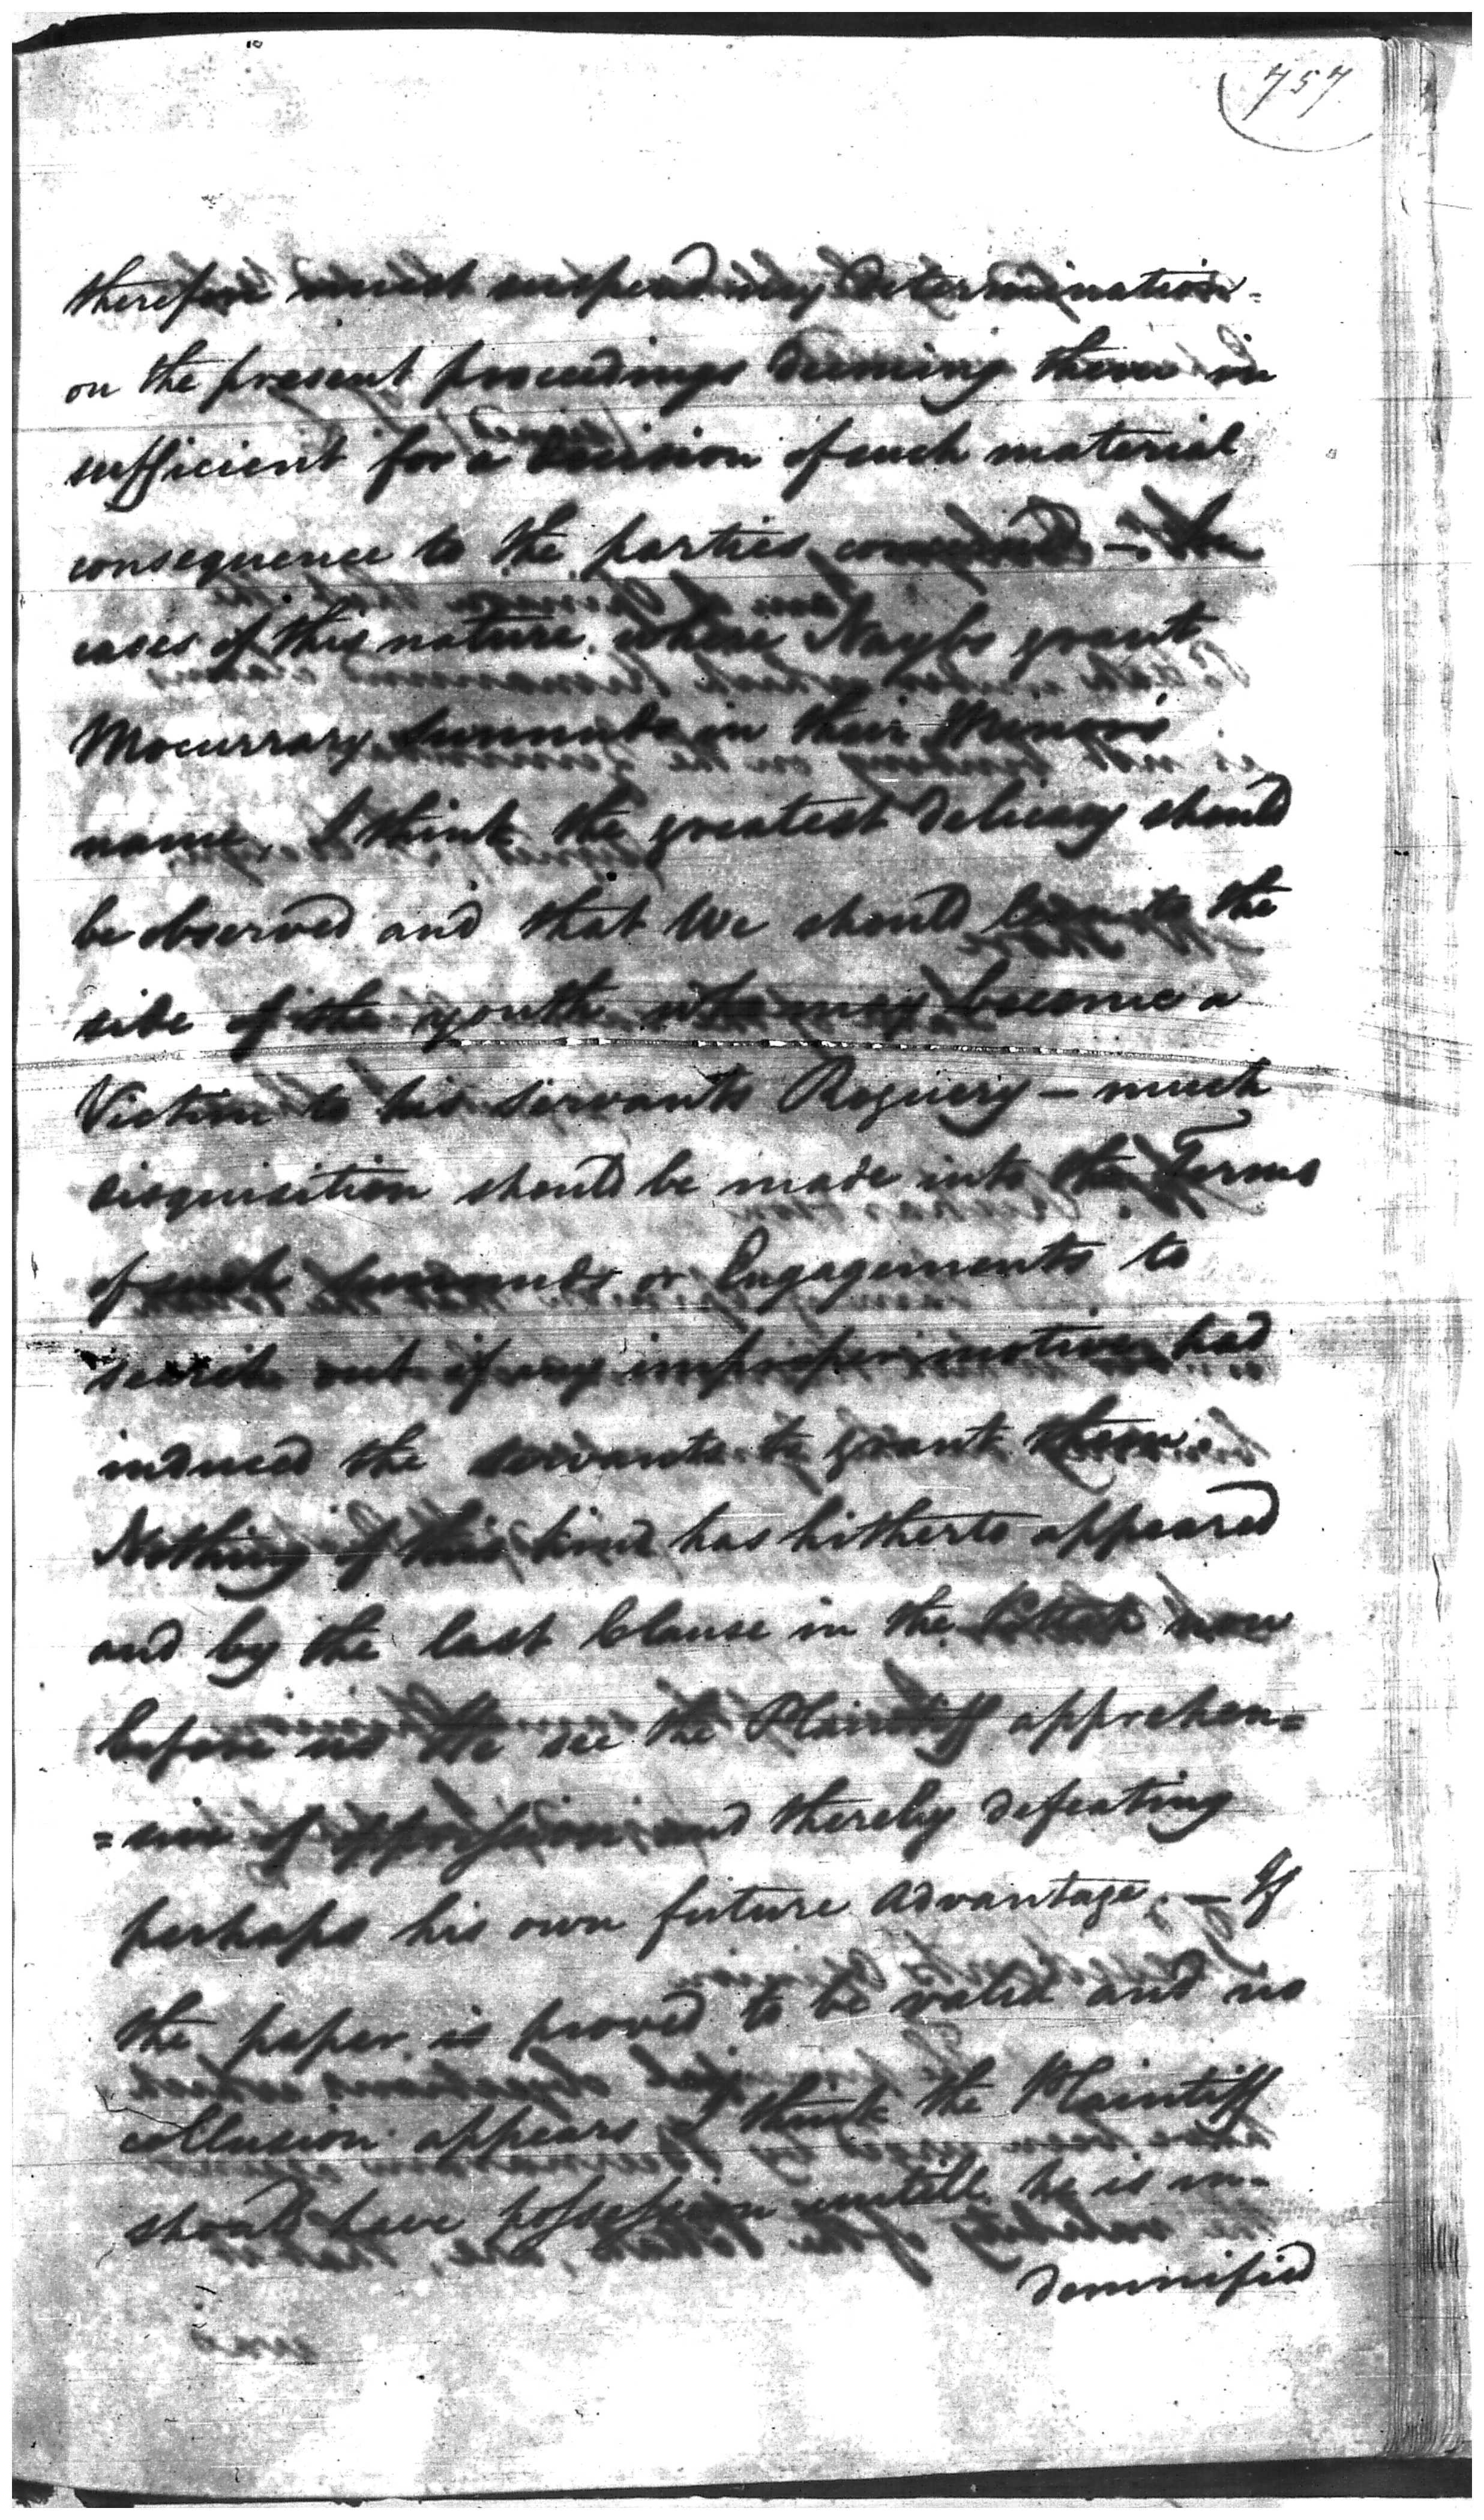 757
therefore must suspend my determination
on the present proceedings deeming them in
sufficient for a decision of such material
consequence to the parties concerned – In
cases of this nature where Naybs grant
Mocurrary Sunnuds in their Minors
name, I think the greatest delicacy should
be observed and that We should lean to the
side of the youth who may become a
Victim to his servants Roguery – much
disquisition should be made into the Terms
of such Sunnuds or Engagements to
search out if any improper motives had
induced the servants to grant them.
Nothing of this kind has hitherto appeared
and by the last Clause in the Pottah now
before us We see the Plaintiff apprehen=
=sive of oppression and thereby defeating
perhaps his own future advantage. – If
the paper is proved to be valid and no
collusion appears I think the Plaintiff
should have possession untill he is in-
demnified